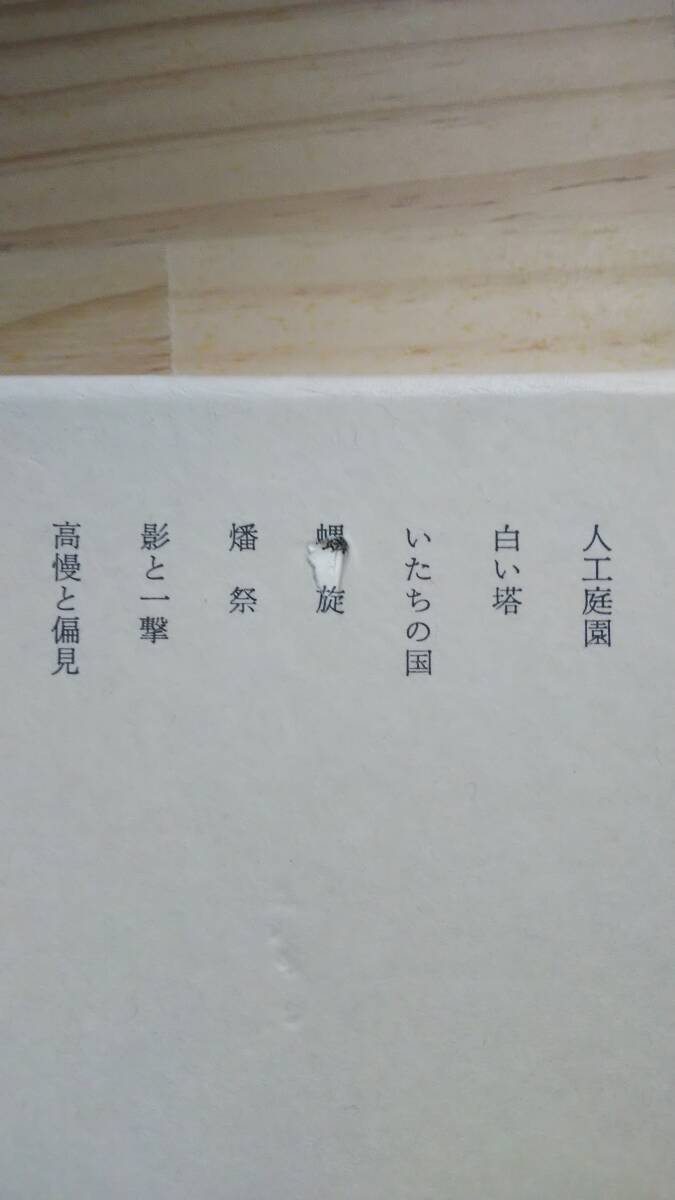 人工庭園
白い塔
いたちの国
螺旋
燔祭
影と一撃
高慢と偏見